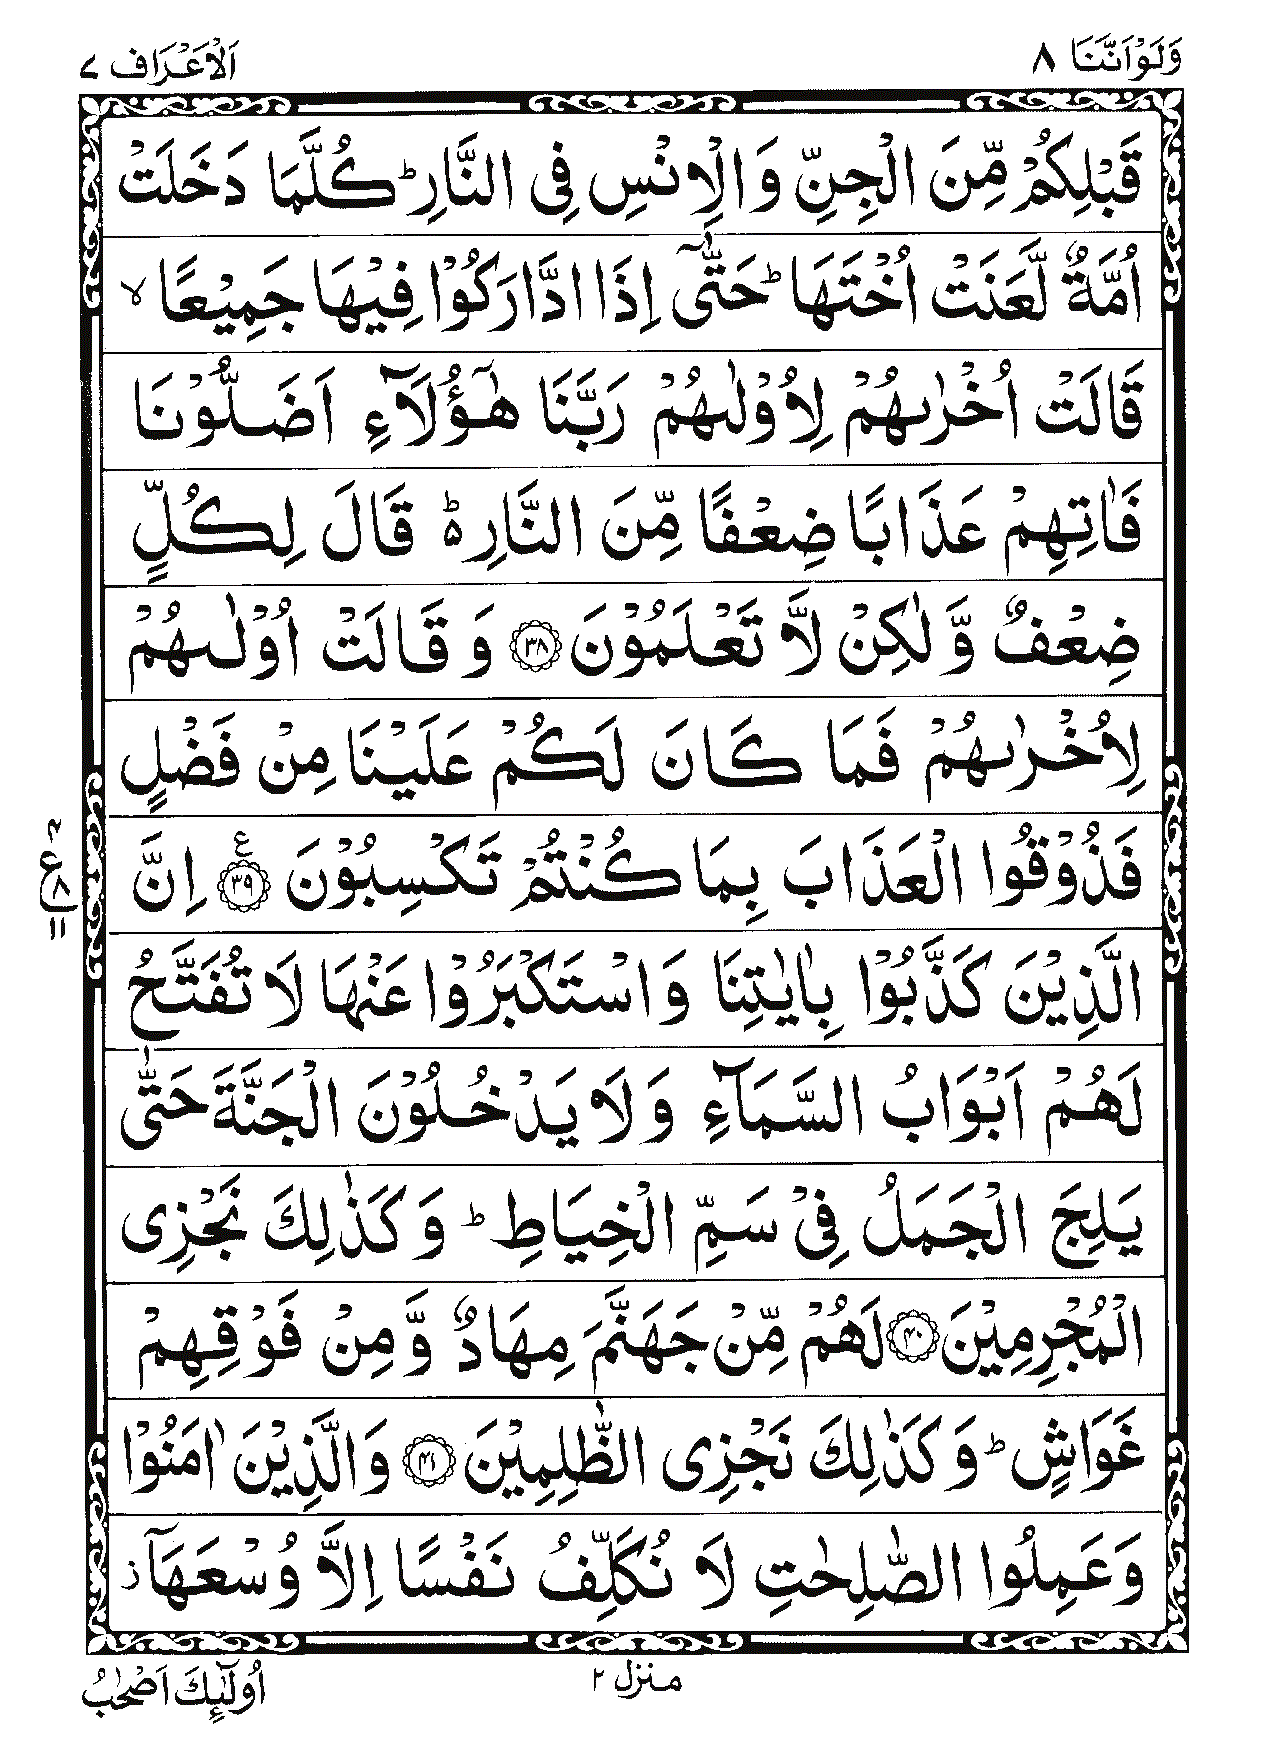 وَلَوْ اَنَّنَا ٨
اَلْاَعْرَاف ٧
قَبْلِكُمْ مِّنَ الْجِنِّ وَ الْاِنْسِ فِی النَّارِ ؕ كُلَّمَا دَخَلَتْ
اُمَّةٌ لَّعَنَتْ اُخْتَهَا ؕ حَتّٰۤی اِذَا ادَّارَكُوْا فِیْهَا جَمِیْعًا ۙ
قَالَتْ اُخْرٰىهُمْ لِاُوْلٰىهُمْ رَبَّنَا هٰۤؤُلَآءِ اَضَلُّوْنَا
فَاٰتِهِمْ عَذَابًا ضِعْفًا مِّنَ النَّارِ ۬ؕ قَالَ لِكُلٍّ
ضِعْفٌ وَّ لٰكِنْ لَّا تَعْلَمُوْنَ ۝٣٨ وَ قَالَتْ اُوْلٰىهُمْ
لِاُخْرٰىهُمْ فَمَا كَانَ لَكُمْ عَلَیْنَا مِنْ فَضْلٍ
فَذُوْقُوا الْعَذَابَ بِمَا كُنْتُمْ تَكْسِبُوْنَ ۝٣٩ ع اِنَّ
٤ ع ٨ ١١
الَّذِیْنَ كَذَّبُوْا بِاٰیٰتِنَا وَ اسْتَكْبَرُوْا عَنْهَا لَا تُفَتَّحُ
لَهُمْ اَبْوَابُ السَّمَآءِ وَ لَا یَدْخُلُوْنَ الْجَنَّةَ حَتّٰی
یَلِجَ الْجَمَلُ فِیْ سَمِّ الْخِیَاطِ ؕ وَ كَذٰلِكَ نَجْزِی
الْمُجْرِمِیْنَ ۝٤٠ لَهُمْ مِّنْ جَهَنَّمَ مِهَادٌ وَّ مِنْ فَوْقِهِمْ
غَوَاشٍ ؕ وَ كَذٰلِكَ نَجْزِی الظّٰلِمِیْنَ ۝٤١ وَ الَّذِیْنَ اٰمَنُوْا
وَ عَمِلُوا الصّٰلِحٰتِ لَا نُكَلِّفُ نَفْسًا اِلَّا وُسْعَهَاۤ ز
منزل ٢
اُولٰٓئِكَ اَصْحٰبُ